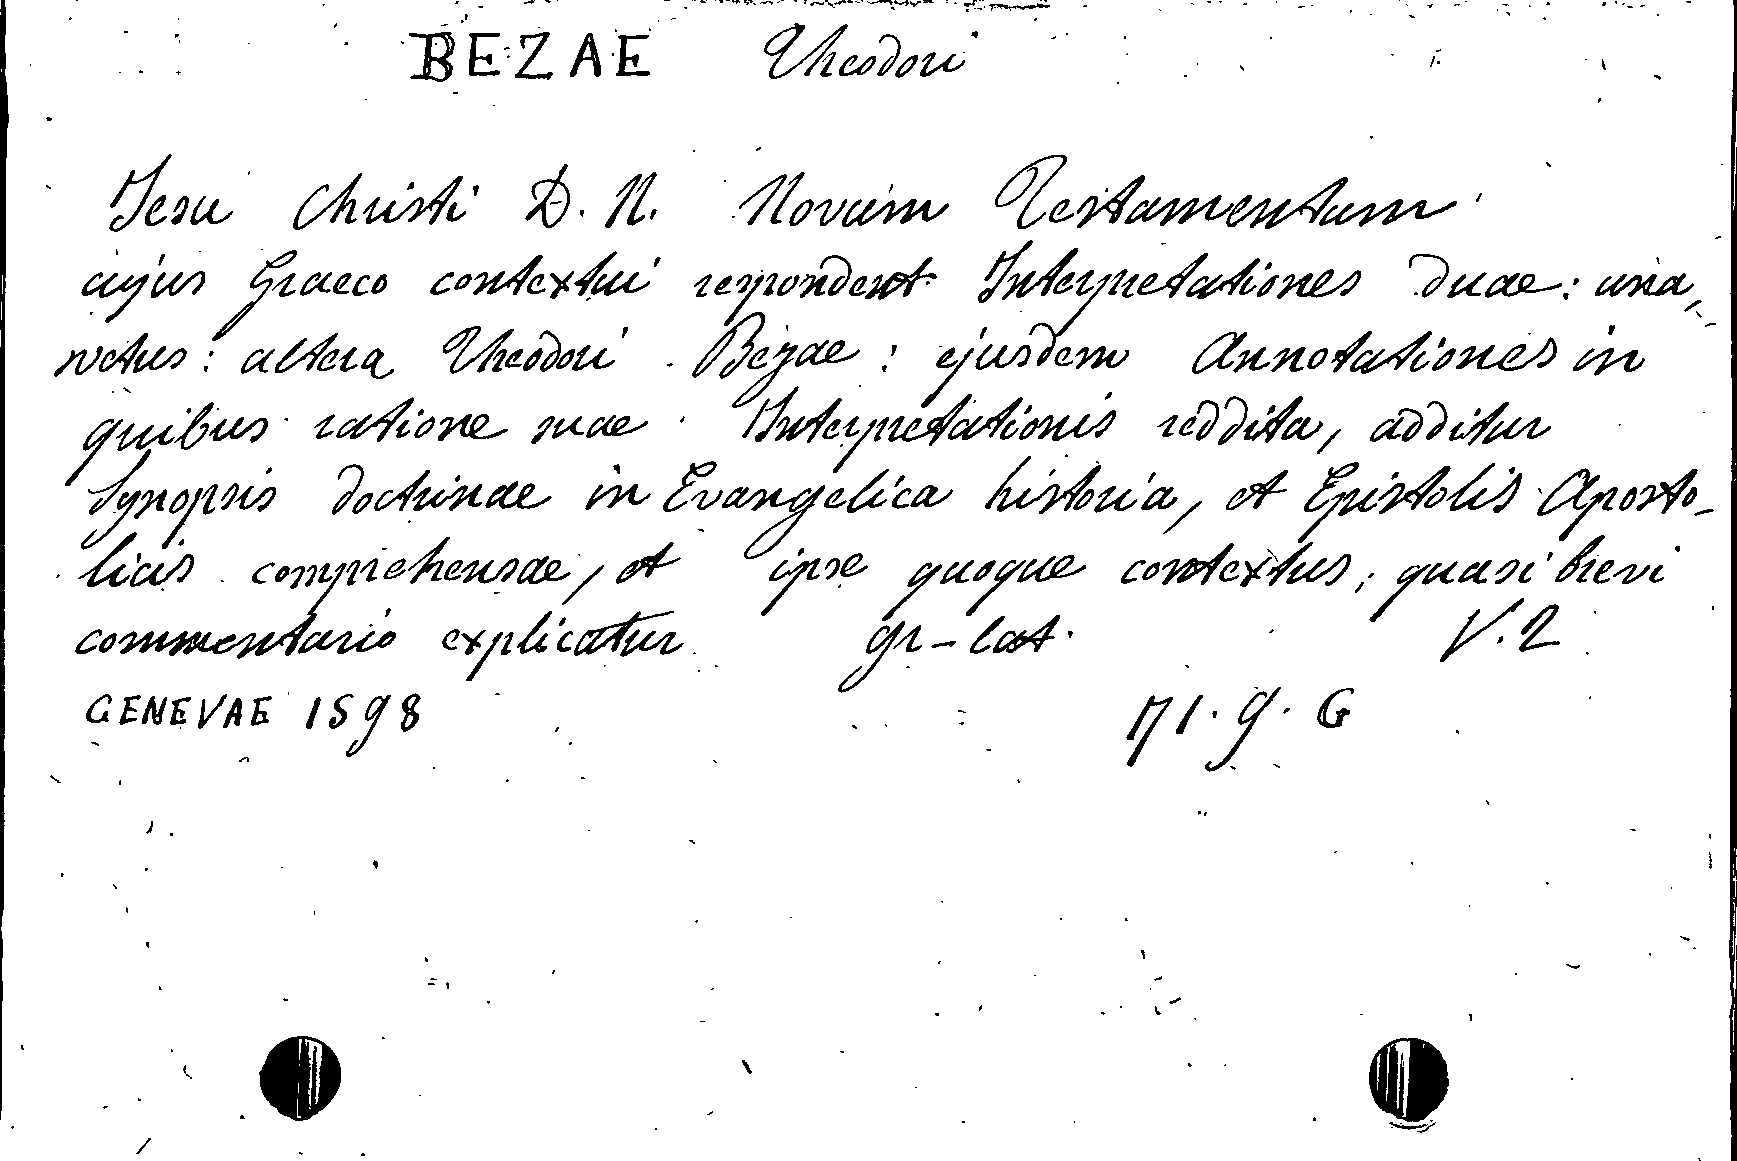 BEZAE Theodori
Jesu Christi D. N. Novum Testamentum
cujus Graeco contextui respondent Interpretationes duae: una,
vetus: altera Theodori Bezae: ejusdem Annotationes in
quibus ratione suae Interpretationis reddita, additur
Synopsis doctrinae in Evangelica historia, et Epistolis Aposto-
licis comprehensae, et ipse quoque contextus, quasi brevi
commentario explicatur gr-lat. V. 2
GENEVAE 1598 71. 9. G